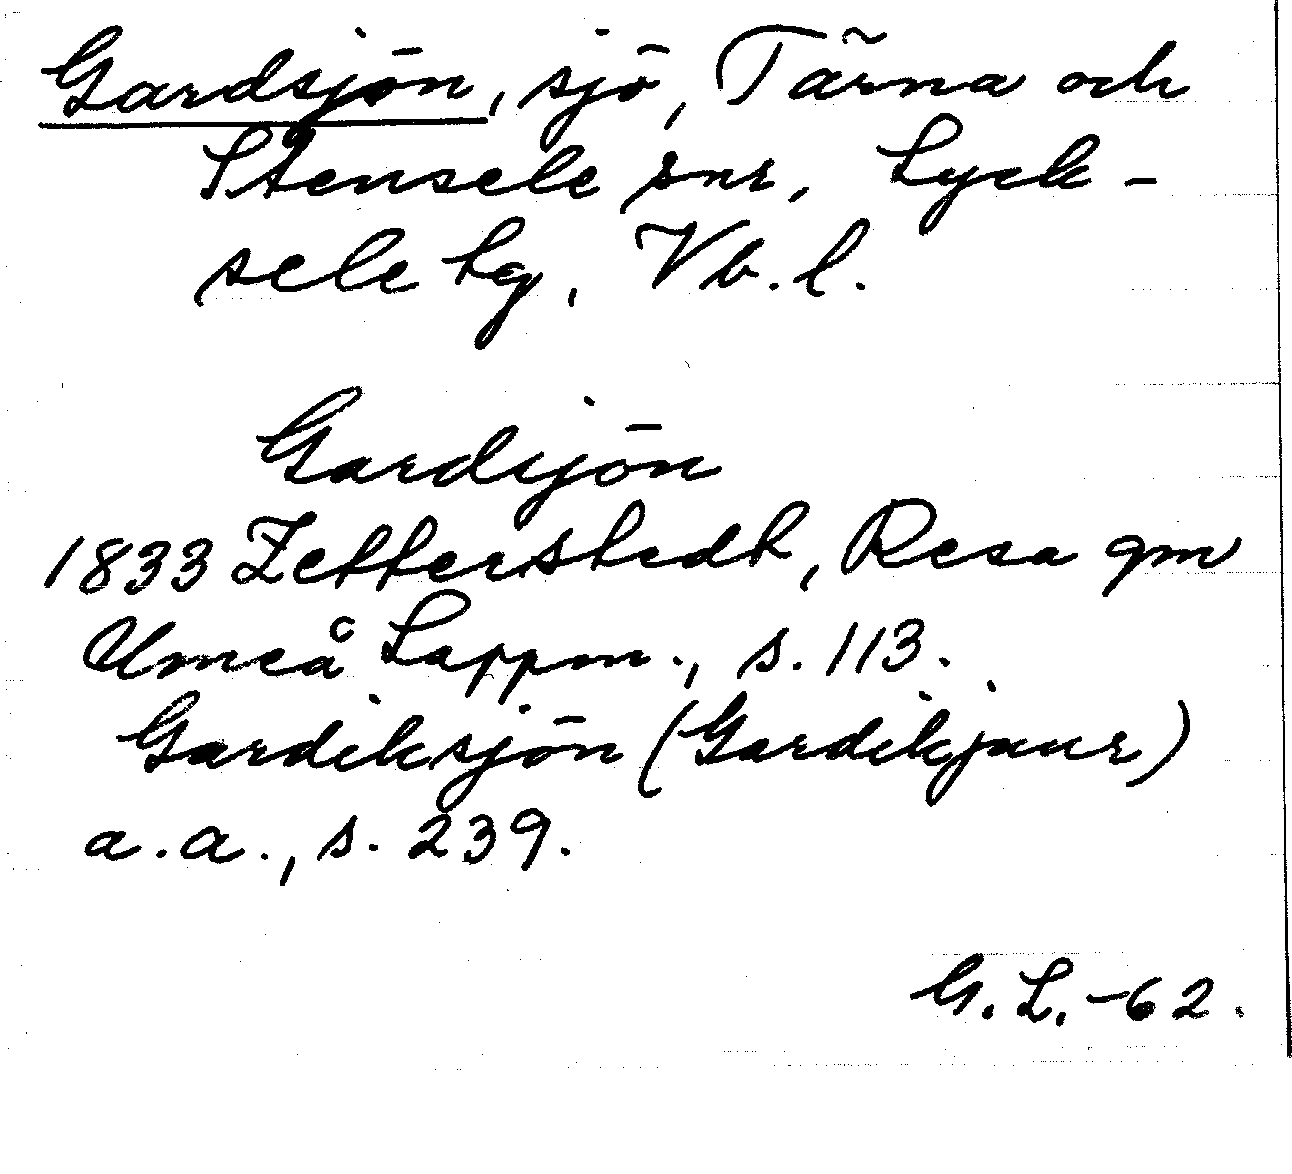 Gardsjön, sjö, Tärna och
Stensele snr, Lyck-
sele lg, Vb.l.
Gardsjön
1833 Zetterstedt, Resa gm
Umeå Lappm., s. 113.
Gardiksjön (Gardikjaur)
a.a., s. 239.
G.L.-62.